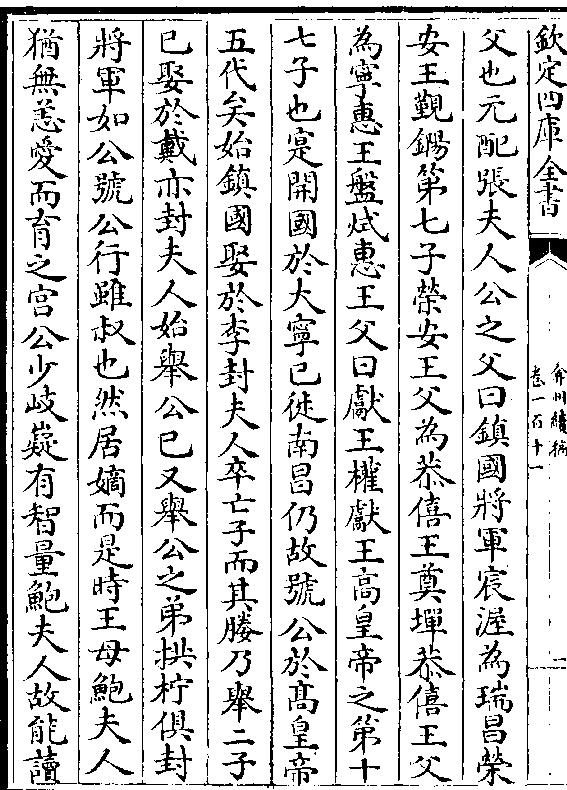 欽定四庫全書
弇州續稿
卷一百十一
二
父也元配張夫人公之父曰鎮國將軍宸渥為瑞昌榮
安王覲鍚第七子榮安王父為恭僖王奠墠恭僖王父
為寧惠王盤烒惠王父曰獻王權獻王髙皇帝之第十
七子也寔開國於大寧已徙南昌仍故號公於髙皇帝
五代矣始鎮國娶於李封夫人卒亡子而其媵乃舉二子
已娶於戴亦封夫人始舉公已又舉公之弟拱柠俱封
將軍如公號公行雖叔也然居嫡而是時王母鮑夫人
猶無恙愛而育之宫公少岐嶷有智量鮑夫人故能讀